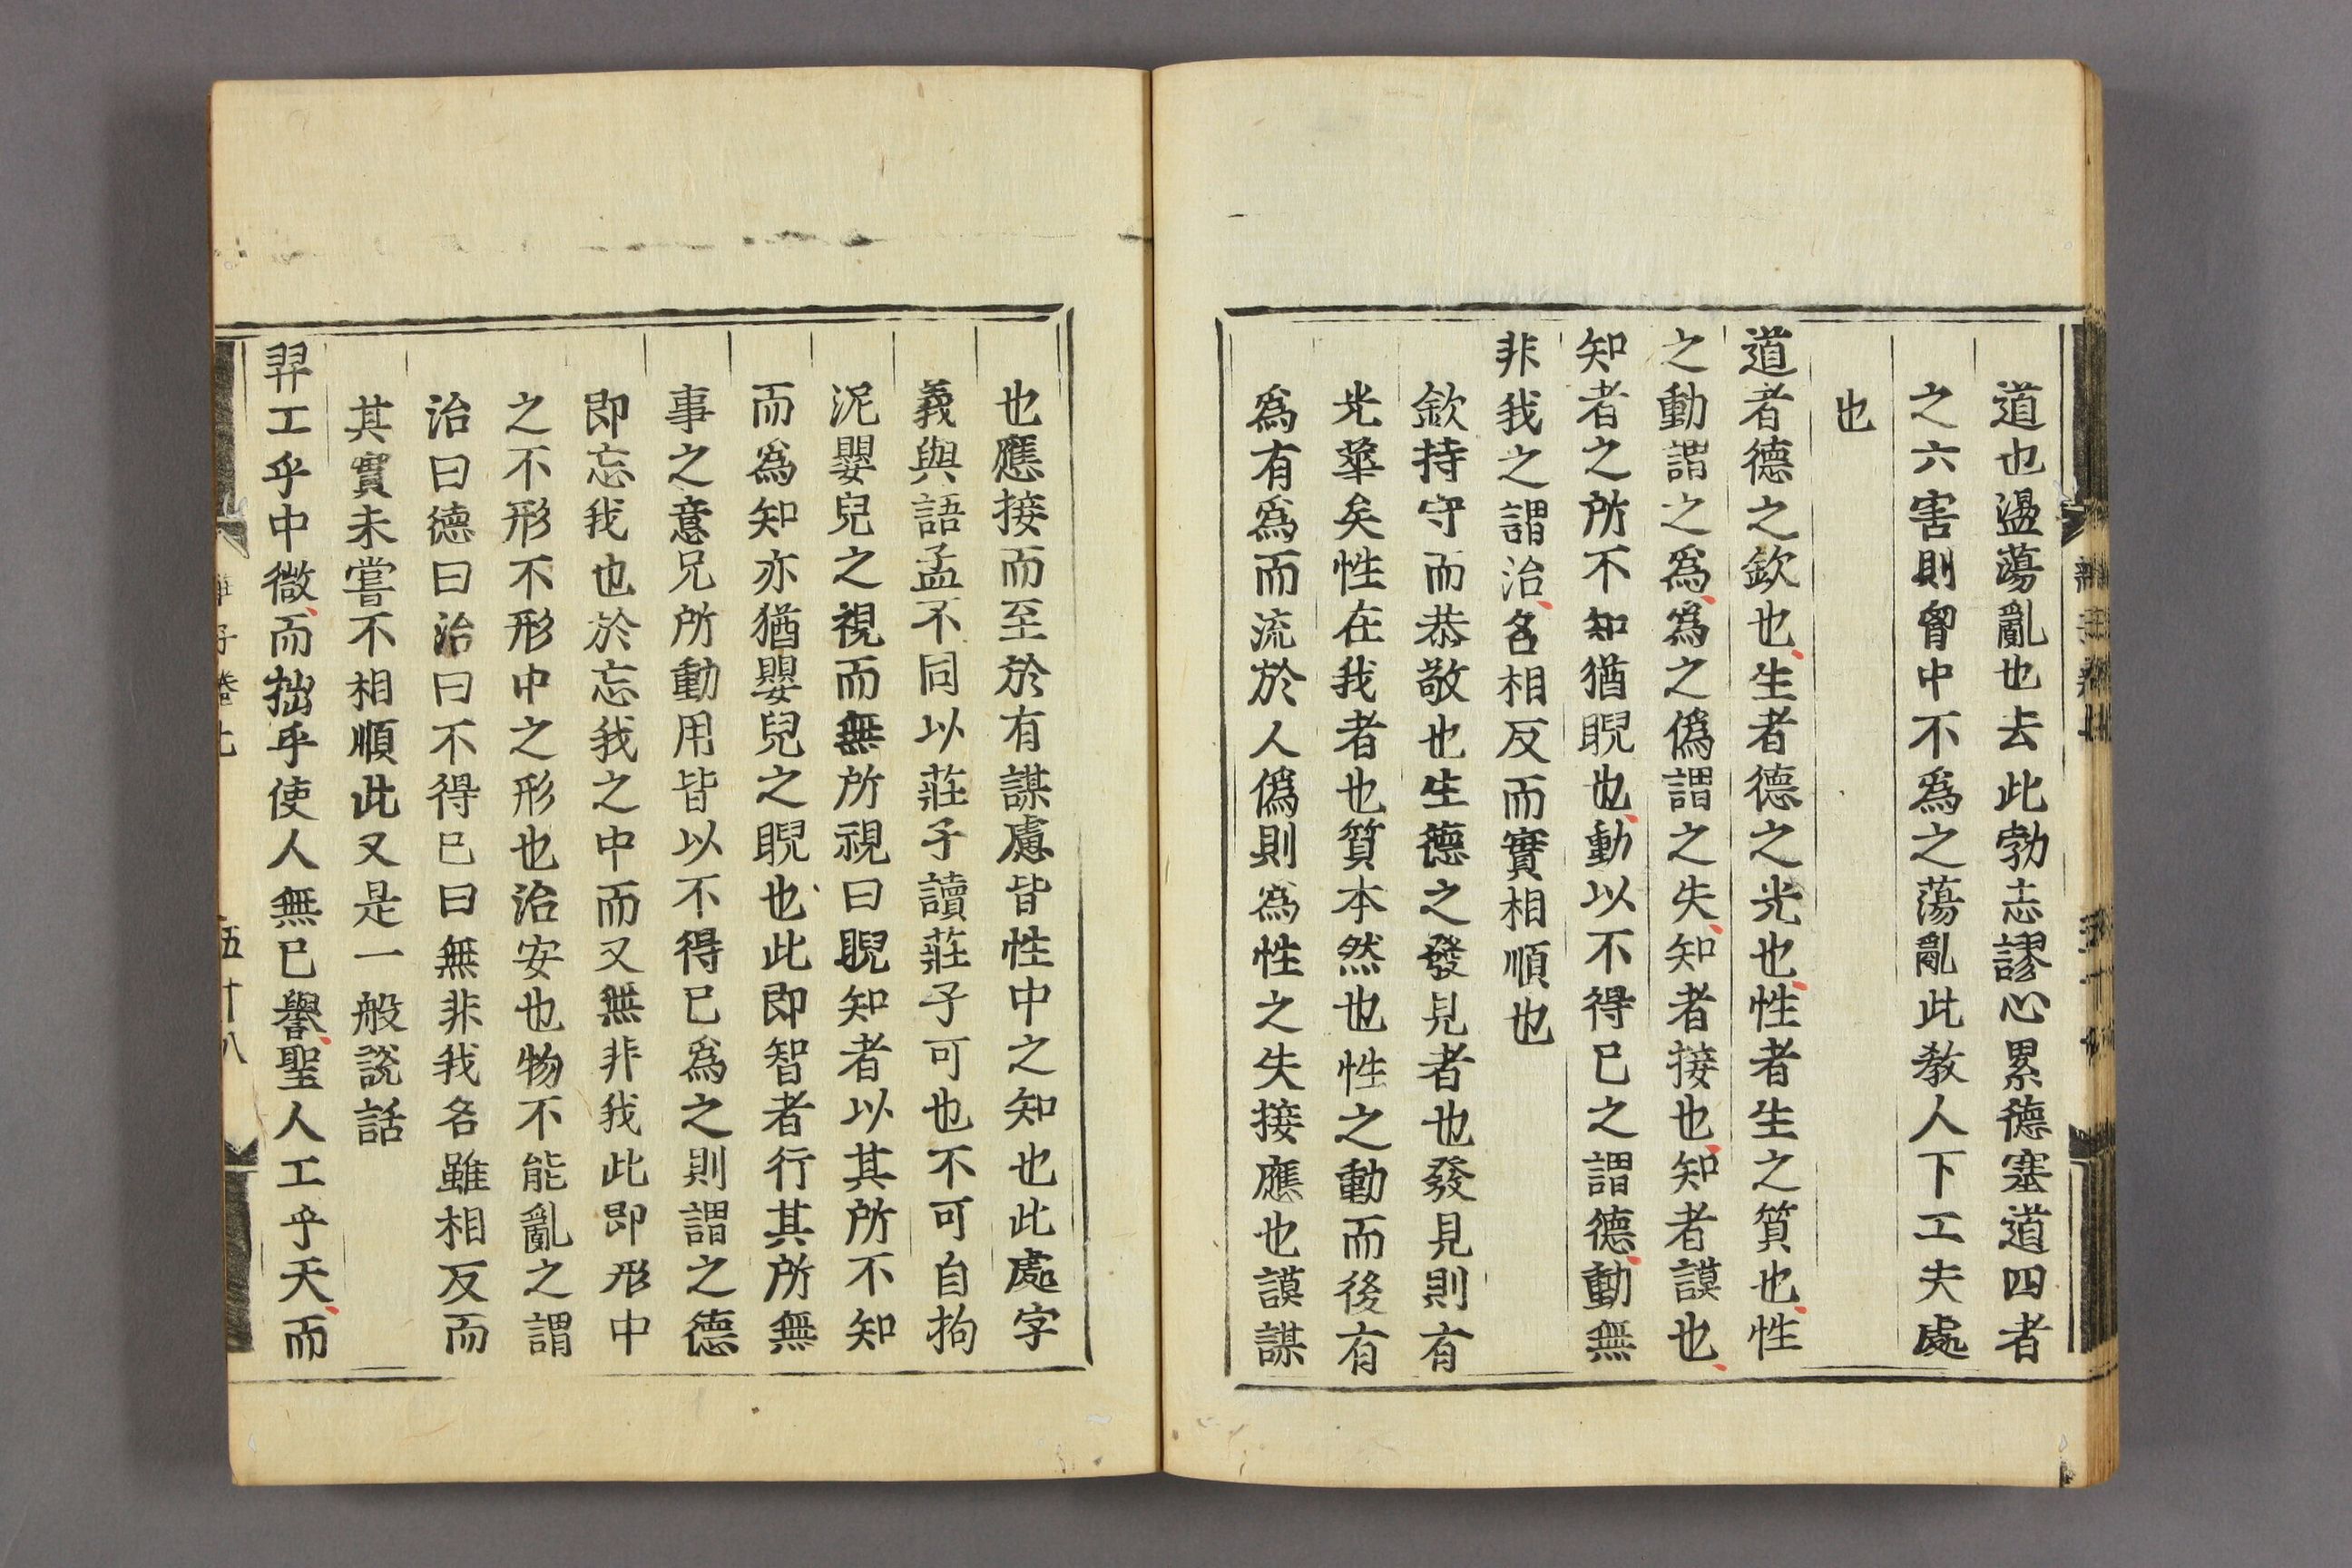 道也盪蕩亂也去此勃志謬心累德塞道四者
之六害則胷中不為之蕩亂此教人下工夫處
也
道者德之欽也生者德之光也性者生之質也性
之動謂之為為之偽謂之失知者接也知者謨也
知者之所不知猶睨也動以不得已之謂德動無
非我之謂治名相反而實相順也
欽持守而恭敬也生德之發見者也發見則有
光華矣性在我者也質本然也性之動而後有
為有為而流於人偽則為性之失接應也謨謀
也應接而至於有謀慮皆性中之知也此處字
義與語孟不同以莊子讀莊子可也不可自拘
泥嬰兒之視而無所視曰睨知者以其所不知
而為知亦猶嬰兒之睨也此即智者行其所無
事之意兄所動用皆以不得已為之則謂之德
即忘我也於忘我之中而又無非我此即形中
之不形不形中之形也治安也物不能亂之謂
治曰德曰治曰不得已曰無非我名雖相反而
其實未嘗不相順此又是一般說話
羿工乎中微而拙乎使人無已譽聖人工乎天而
子卷七
五十八